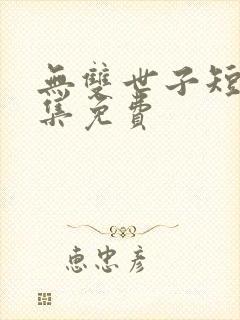 無雙世子短
集免費
惠忠彥